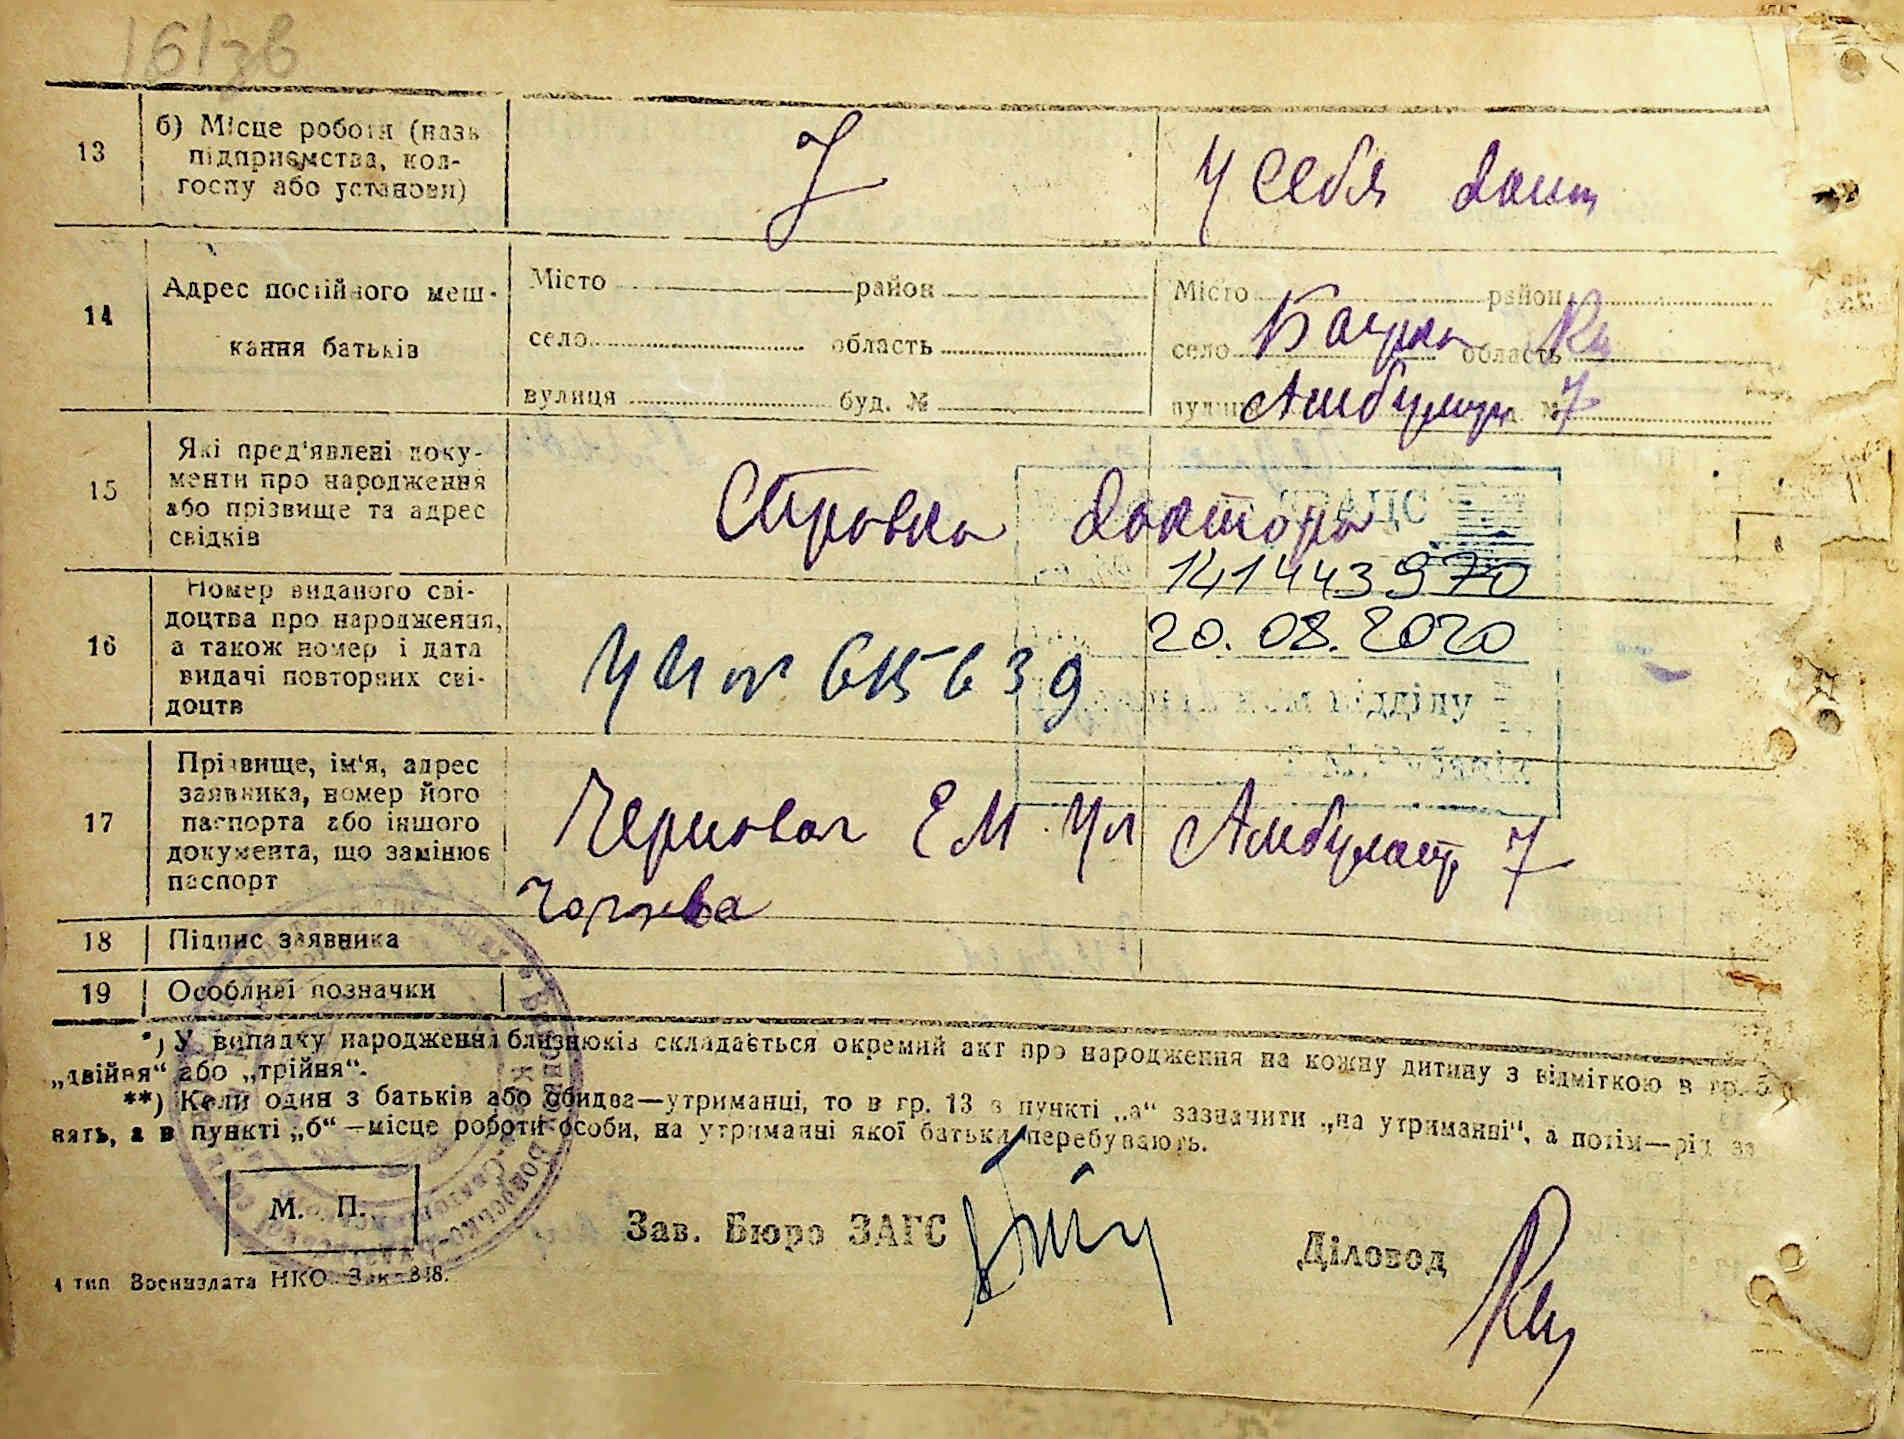 13
б) Місце роботи (назв
підприємства, кол-
госпу або установи)
у себя дома
14
Адрес постійного меш-
кання батьків
Місто район
село область
вулиця буд. №
Місто район
село область
вулиця Амбулат 7
15
Які пред'явлені доку-
менти про народження
або прізвище та адрес
свідків
Справка доктора
16
Номер виданого сві-
доцтва про народження,
а також номер і дата
видачі повторних сві-
доцтв
141443970
20.08.2020
17
Прізвище, ім'я, адрес
заявника, номер його
паспорта або іншого
документа, що замінює
паспорт
Е М Ул Амбулат, 7
18 Підпис заявника
19 Особливі позначки
*) У випадку народження близнюків складається окремий акт про народження на кожну дитину з відміткою в гр. 5
„двійня“ або „трійня“.
**) Коли один з батьків або обидва—утриманці, то в гр. 13 в пункті „а“ зазначити „на утриманні“, а потім—рід за
нять, а в пункті „б“—місце роботи особи, на утриманні якої батьки перебувають.
М. П.
Зав. Бюро ЗАГС
Діловод
4 тип Воениздата НКО. Зак.